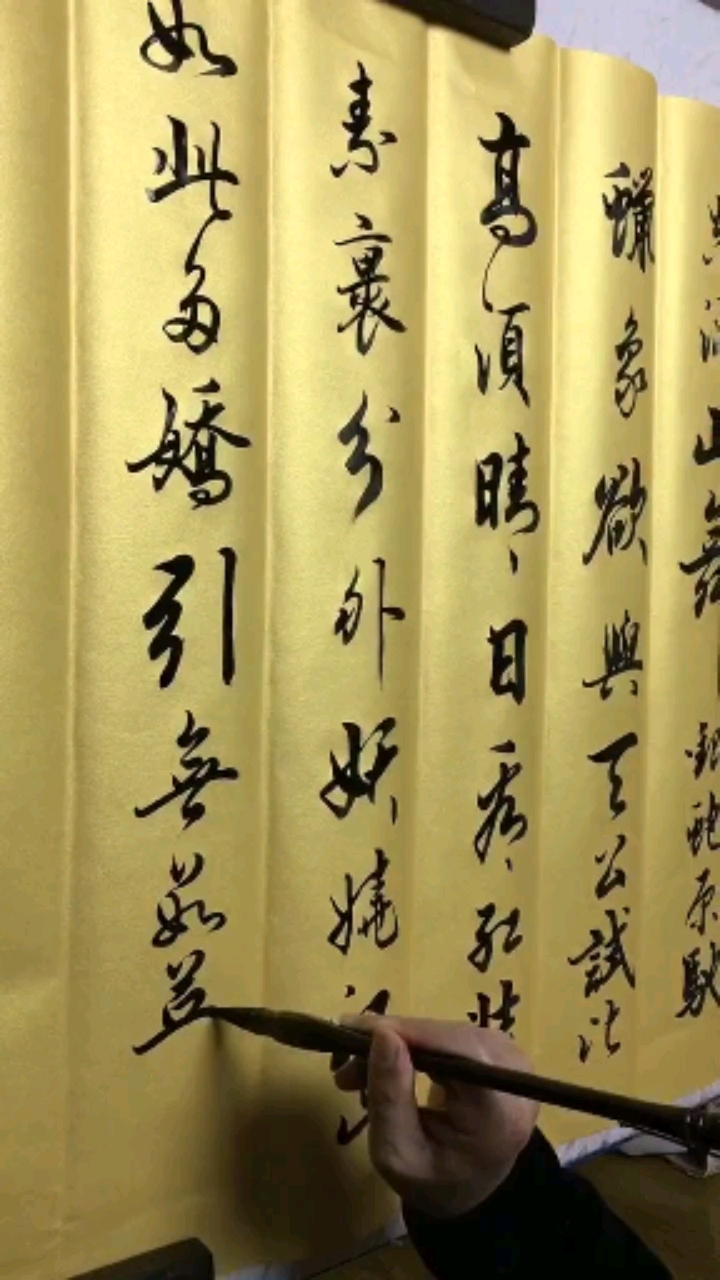 山舞銀蛇原馳
蠟象欲與天公試比
高須晴日看紅裝
素裹分外妖嬈
如此多嬌引無